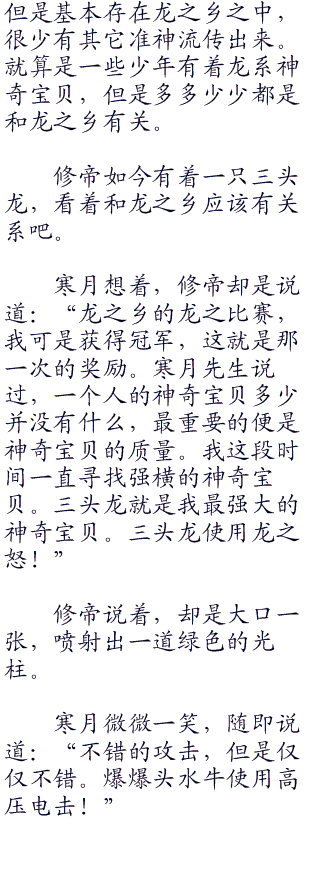 但是基本存在龙之乡之中，
很少有其它准神流传出来。
就算是一些少年有着龙系神
奇宝贝，但是多多少少都是
和龙之乡有关。
修帝如今有着一只三头
龙，看着和龙之乡应该有关
系吧。
寒月想着，修帝却是说
道：“龙之乡的龙之比赛，
我可是获得冠军，这就是那
一次的奖励。寒月先生说
过，一个人的神奇宝贝多少
并没有什么，最重要的便是
神奇宝贝的质量。我这段时
间一直寻找强横的神奇宝
贝。三头龙就是我最强大的
神奇宝贝。三头龙使用龙之
怒！”
修帝说着，却是大口一
张，喷射出一道绿色的光
柱。
寒月微微一笑，随即说
道：“不错的攻击，但是仅
仅不错。爆爆头水牛使用高
压电击！”